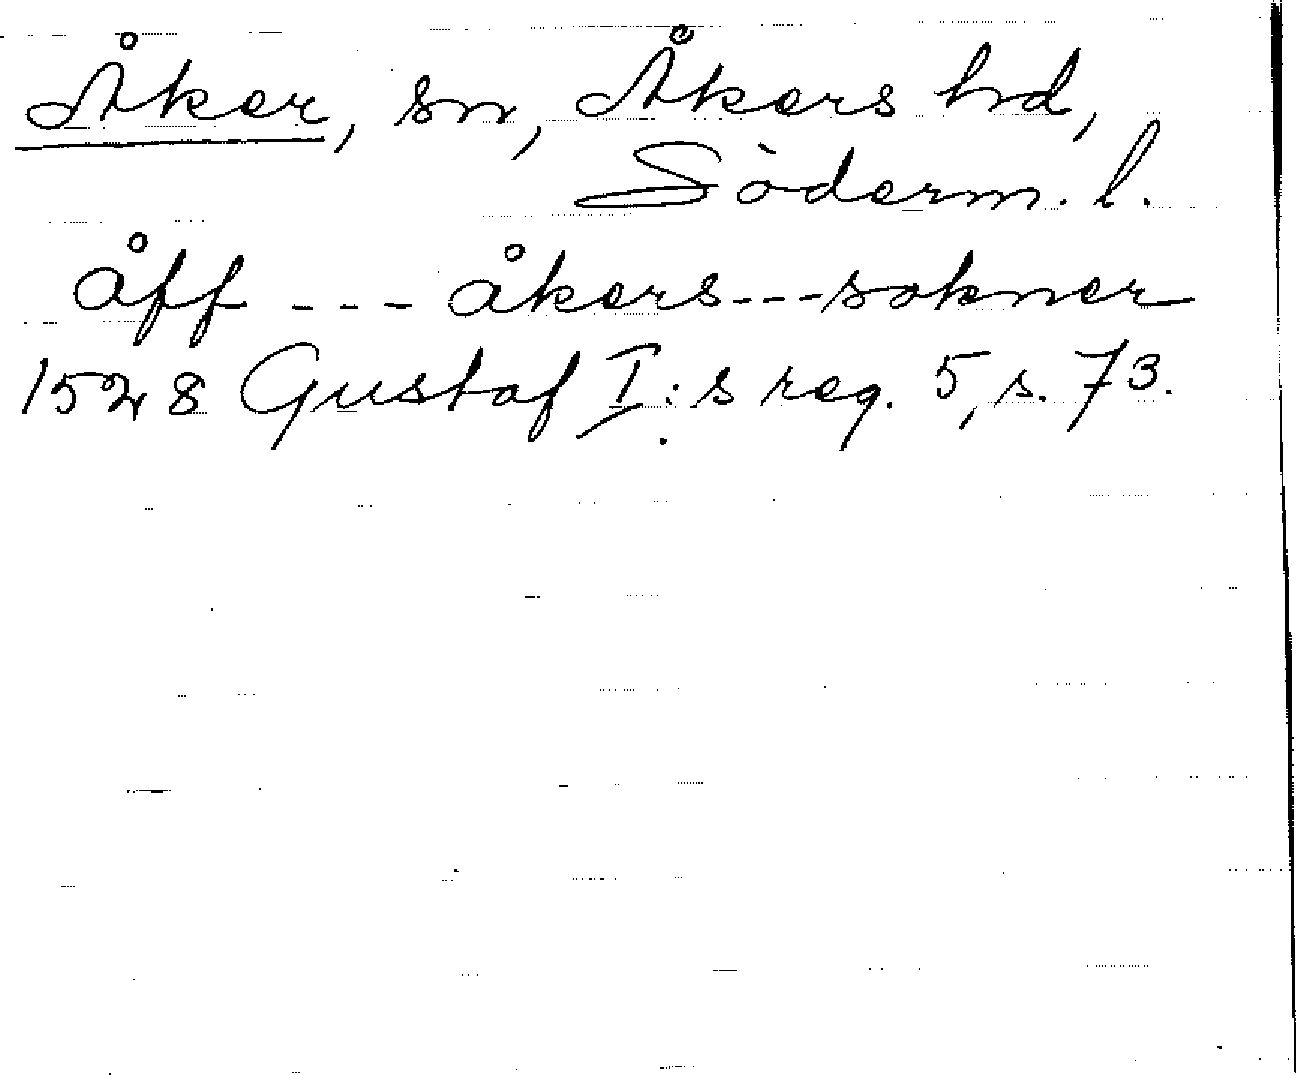 Åker, sn, Åkers hd,
Söderm. l.
åff --- åkers --- sokner
1528 Gustaf I:s reg. 5, s. 73.